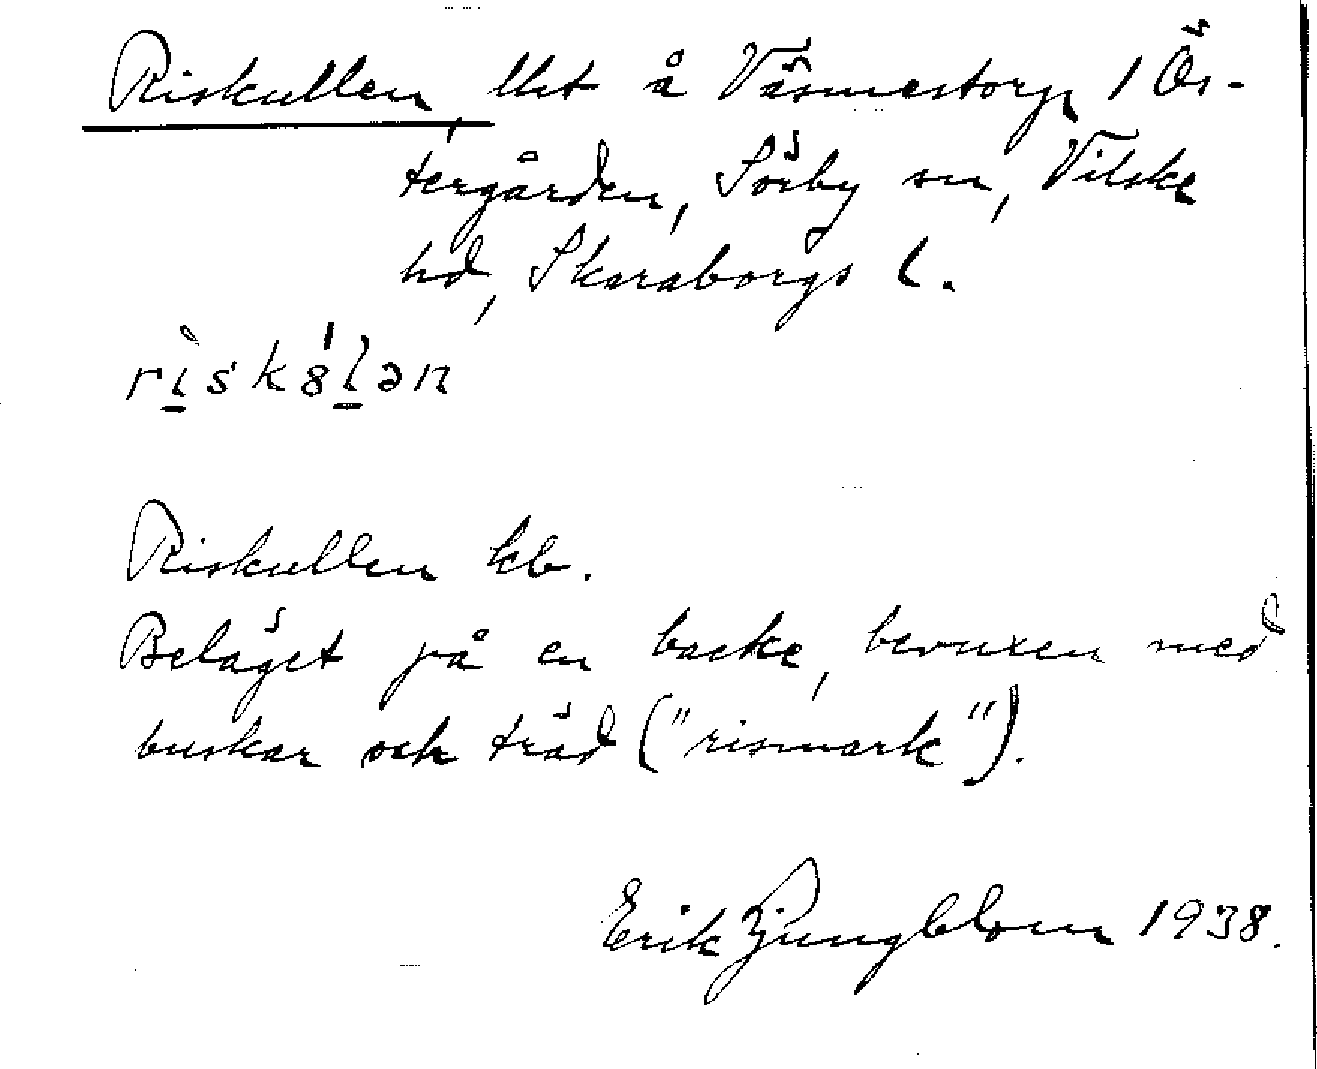 Riskullen, llet å Väsmestorp 1 Ös-
tergården, Sörby sn, Vilske
hd, Skaraborgs l.
rìsk8́lən
Riskullen kb.
Beläget på en backe, bevuxen med
buskar och träd ("rismark").
Erik Ljungblom 1938.